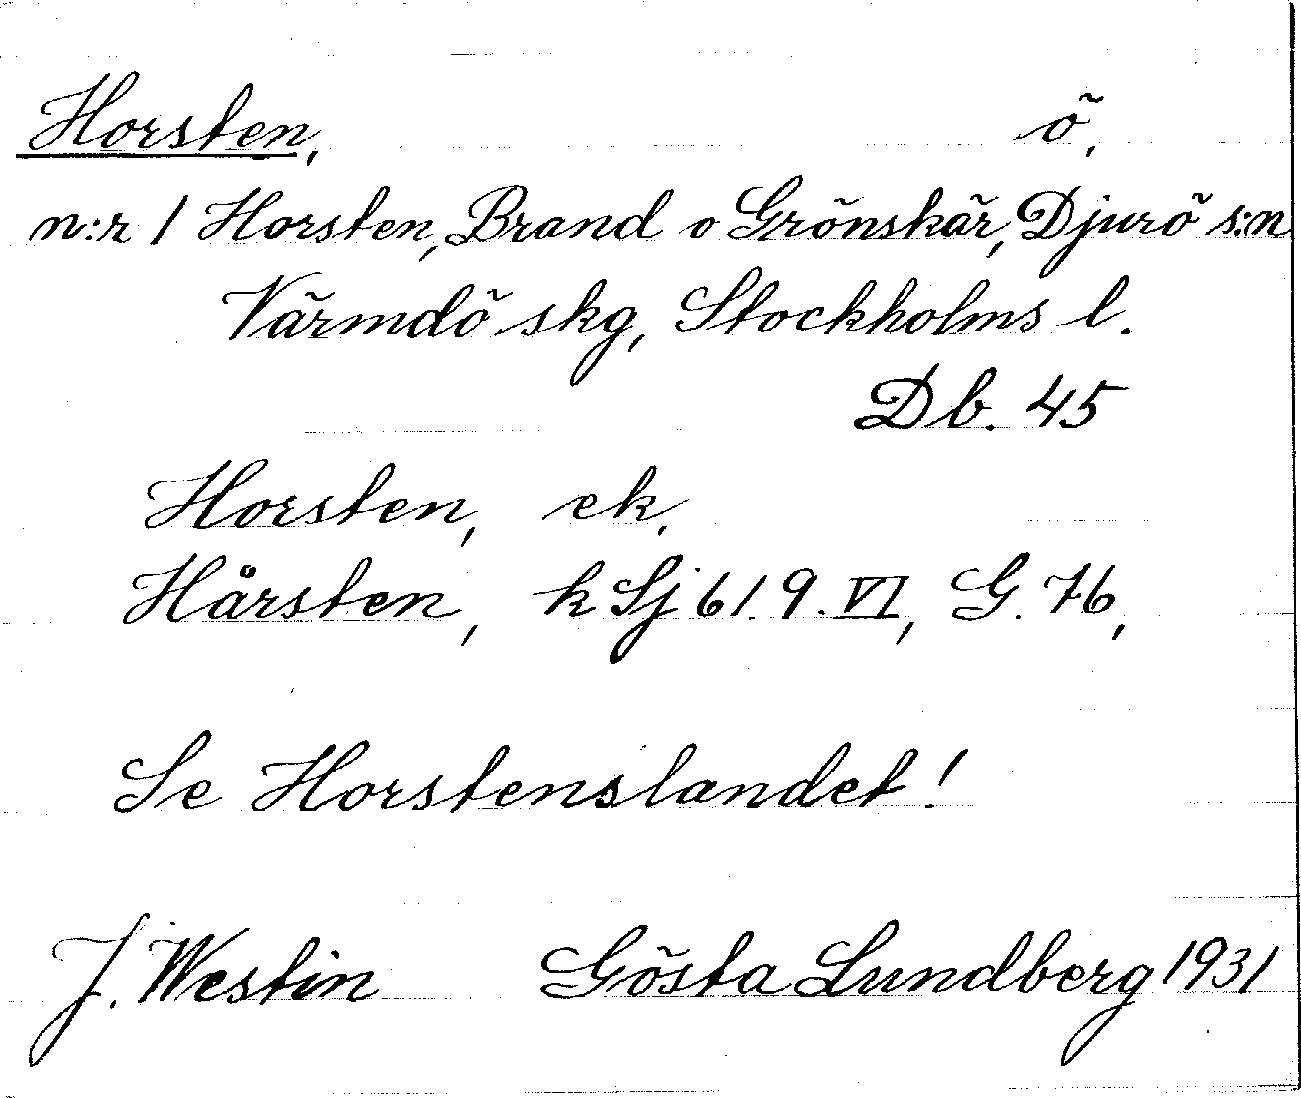 Horsten, ö,
n:r 1 Horsten, Brand o Grönskär, Djurö s:n
Värmdö skg, Stockholms l.
Db. 45
Horsten, ek,
Hårsten, k Sj 61. 9. VI, G. 76,
Se Horstenslandet!
J. Westin Gösta Lundberg 1931